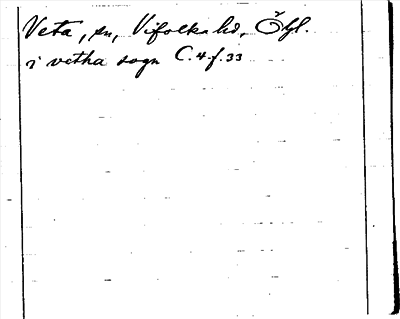 Veta, sn, Vifolka hd, Ögl.
i vetha sogn C. 4 f. 33